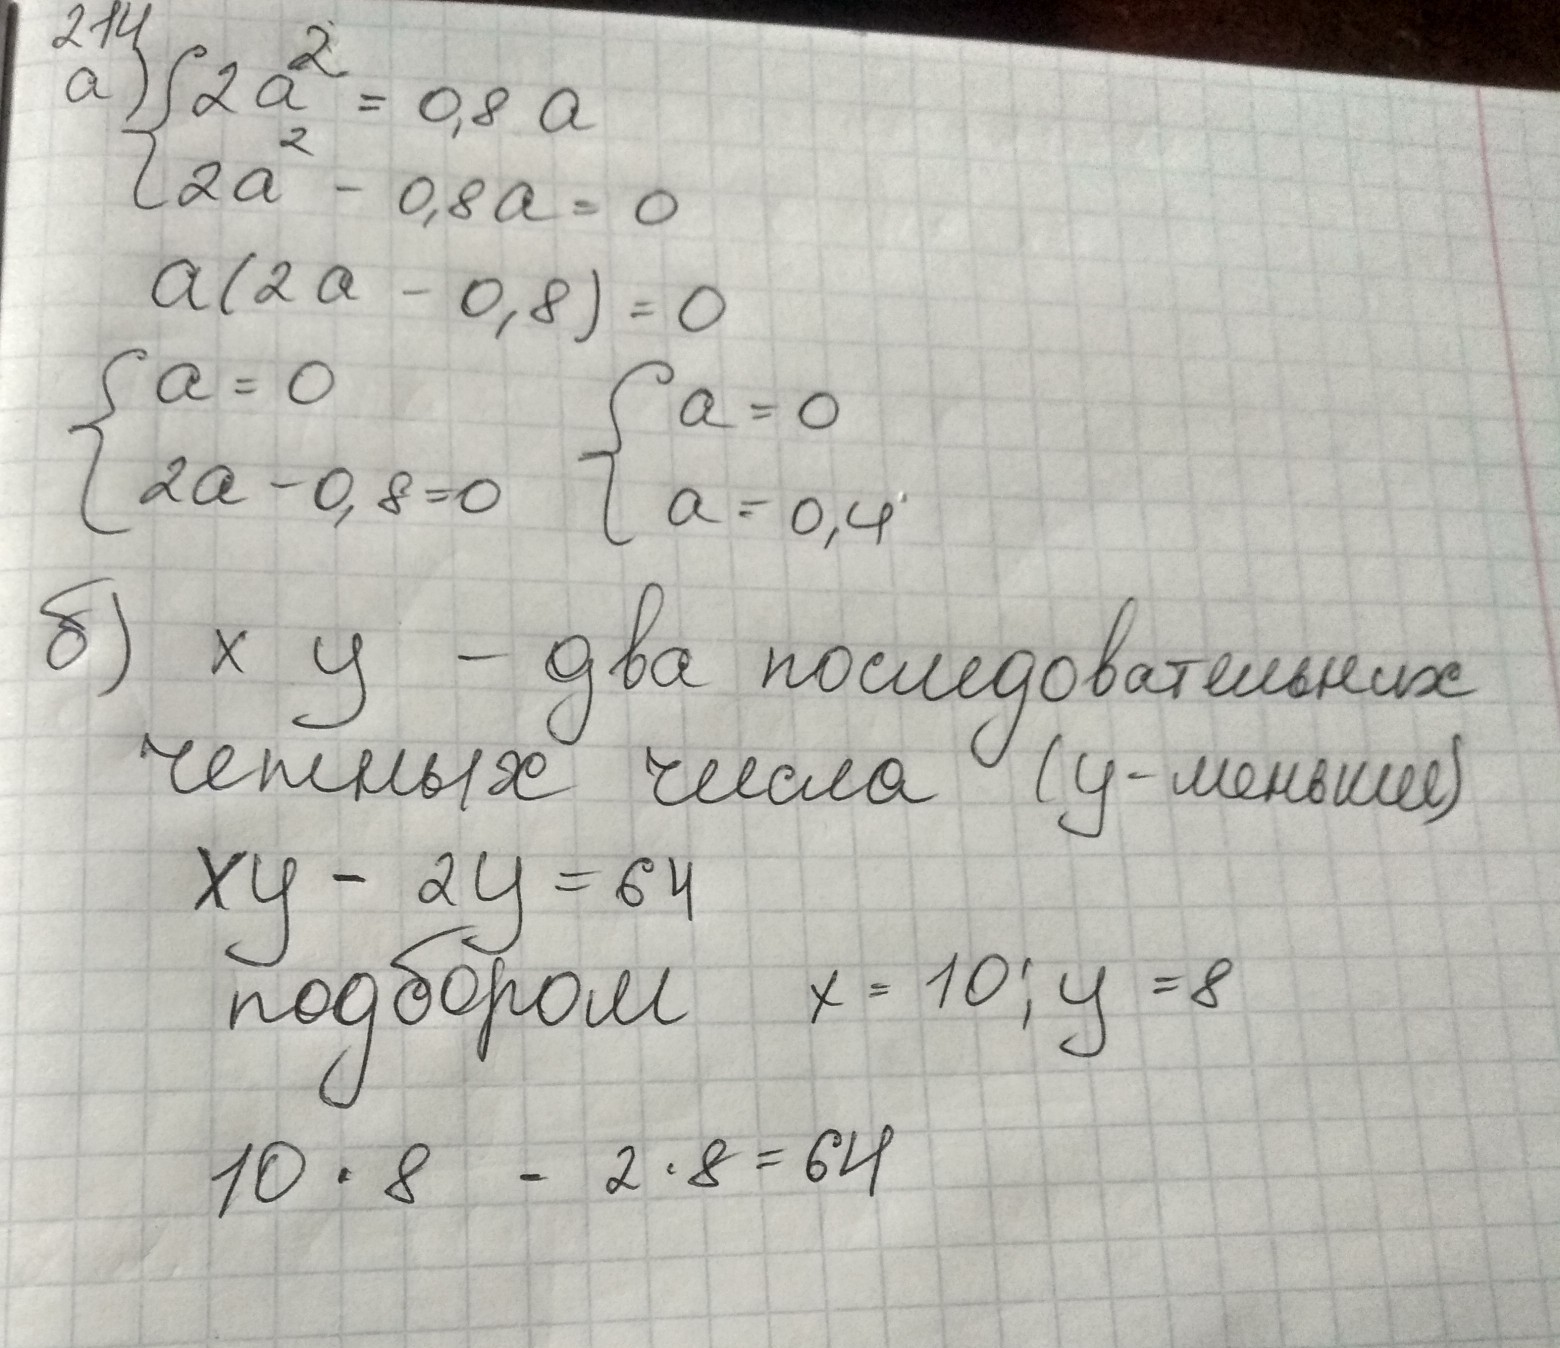 214
а) { 2a² = 0,8 a
{ 2a² - 0,8a = 0
a(2a - 0,8) = 0
{ a = 0 { a = 0
2a - 0,8 = 0 a = 0,4
б) x y - два последовательных
четных числа (y - меньшее)
xy - 2y = 64
подбором x = 10; y = 8
10 · 8 - 2 · 8 = 64